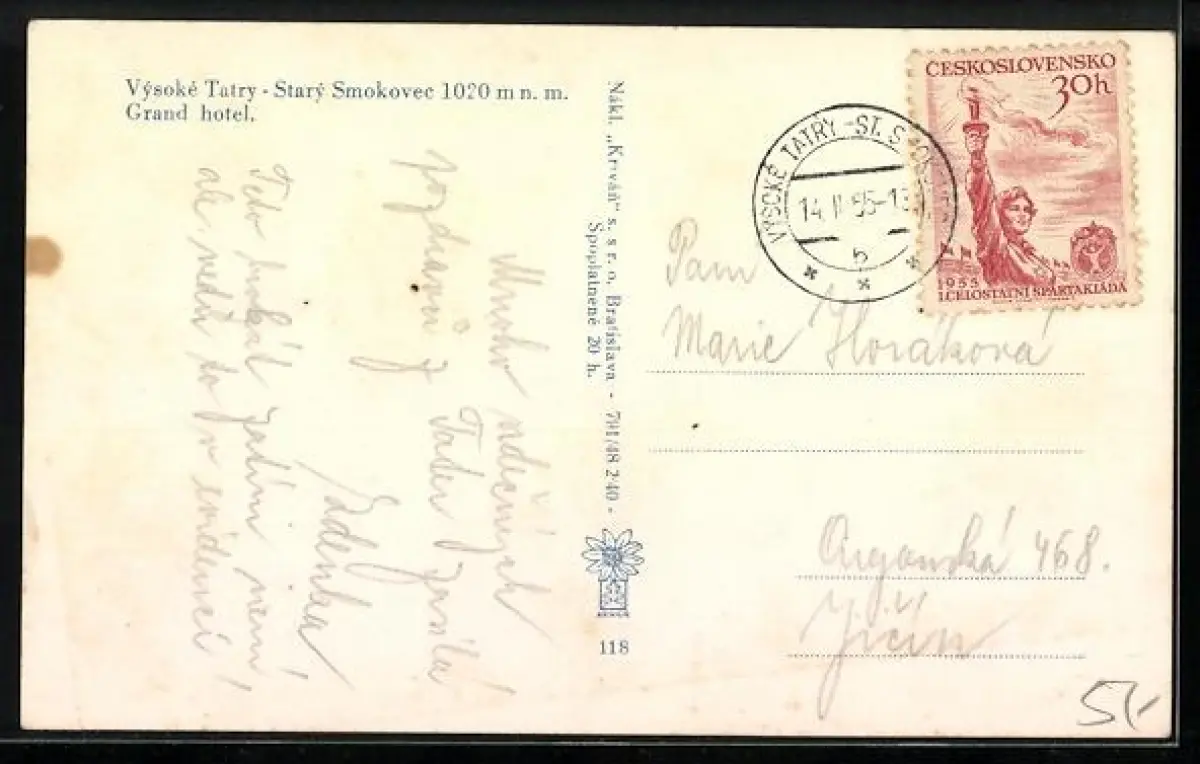 Výsoké Tatry - Starý Smokovec 1020 m n. m.
Grand hotel.
Mnoho srdečných
pozdravů z Tater zasílá
Zdenka
Teto hrokát není,
ale vedu to v evidenci!
Nákl. „Kriváň" s. s r. o. Bratislava - 791/48 240 -
Spoplatnené 20 h.
118
ČESKOSLOVENSKO
30h
1955
I.CELOSTÁTNÍ SPARTAKIÁDA
VYSOKÉ TATRY - ST. S
14.II.55-13
b
Paní
Marie Horáková
468.
Jičín
5,-